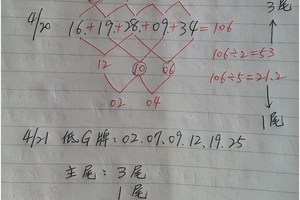 3尾
4/20 16.+19.+28.+09.+34=106
106÷2=53
12 10 06
106÷5=21.2
02 04
1尾
4/21 低G牌:02.07.09.12.19.25
主尾:3尾
1尾